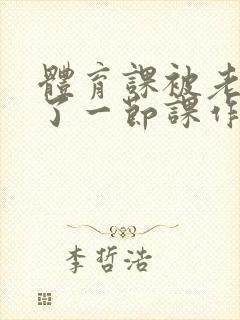 體育課被老
了一節課作
李哲浩